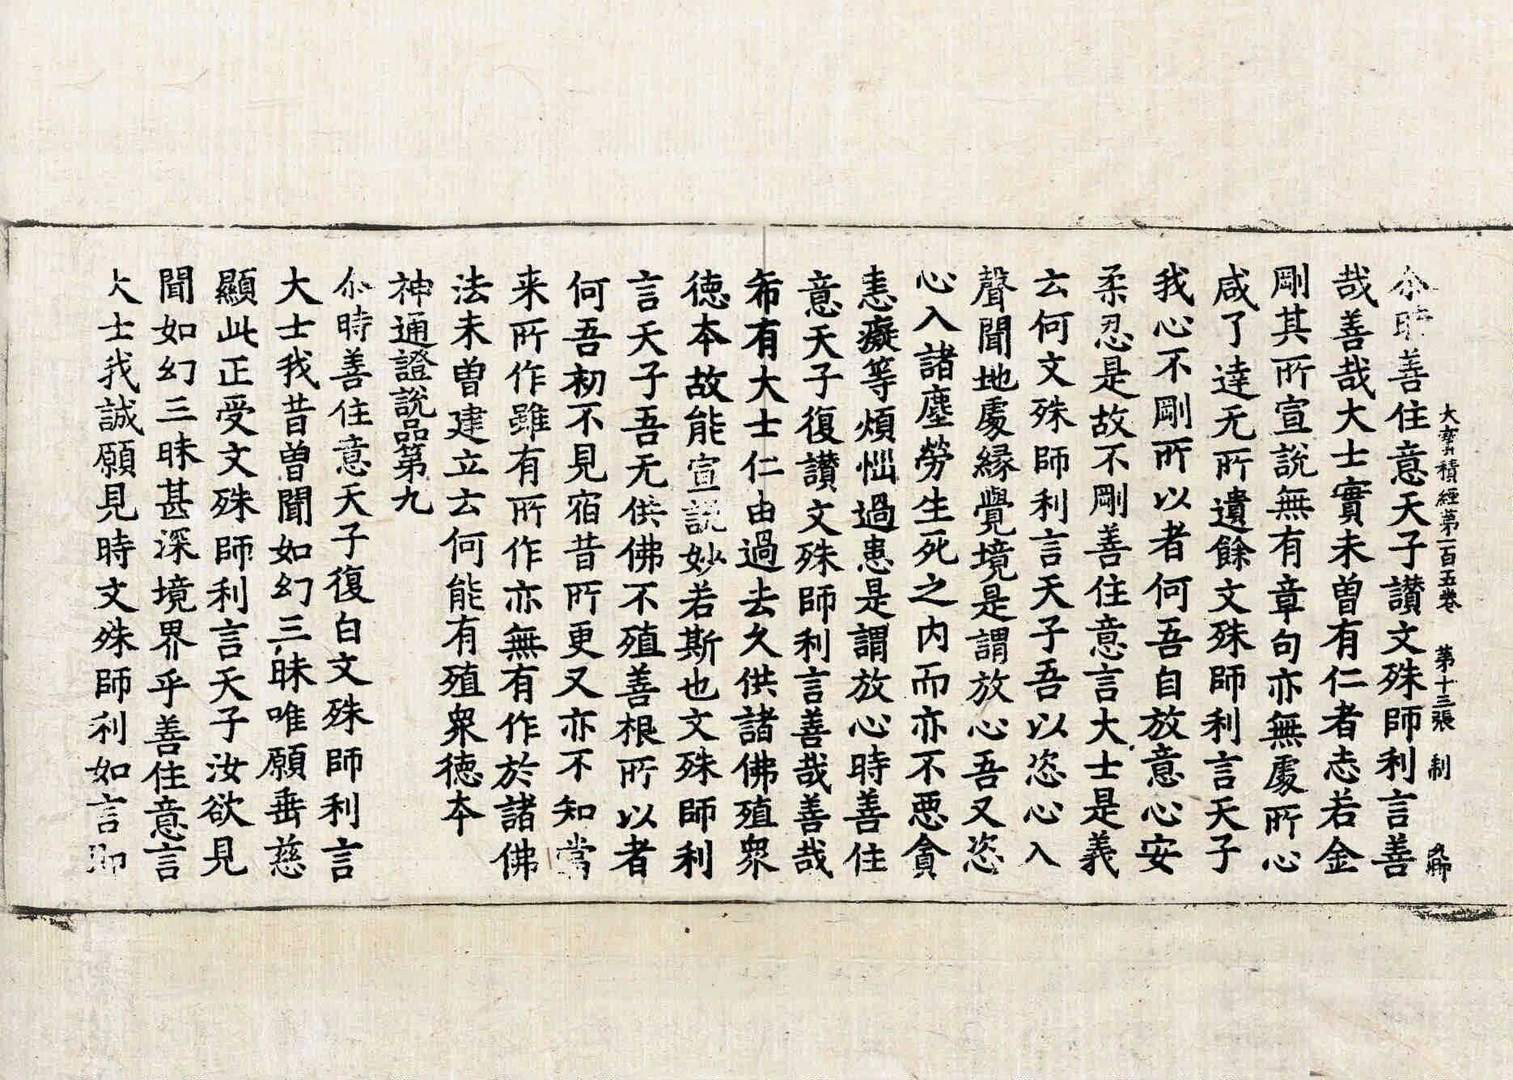 大寶積經第一百五卷 第十三張 制
尒時善住意天子讃文殊師利言善
哉善哉大士實未曽有仁者志若金
剛其所宣說無有章句亦無處所心
咸了達无所遺餘文殊師利言天子
我心不剛所以者何吾自放意心安
柔忍是故不剛善住意言大士是義
云何文殊師利言天子吾以恣心入
聲聞地處緣覺境是謂放心吾又恣
心入諸塵勞生死之内而亦不惡貪
恚癡等煩惱過患是謂放心時善住
意天子復讃文殊師利言善哉善哉
希有大士仁由過去久供諸佛殖衆
徳本故能宣說妙若斯也文殊師利
言天子吾无供佛不殖善根所以者
何吾初不見宿昔所更又亦不知當
来所作雖有所作亦無有作於諸佛
法未曽建立云何能有殖衆徳本
神通證說品第九
尒時善住意天子復白文殊師利言
大士我昔曽聞如幻三昧唯願垂慈
顯此正受文殊師利言天子汝欲見
聞如幻三昧甚深境界乎善住意言
大士我誠願見時文殊師利如言即